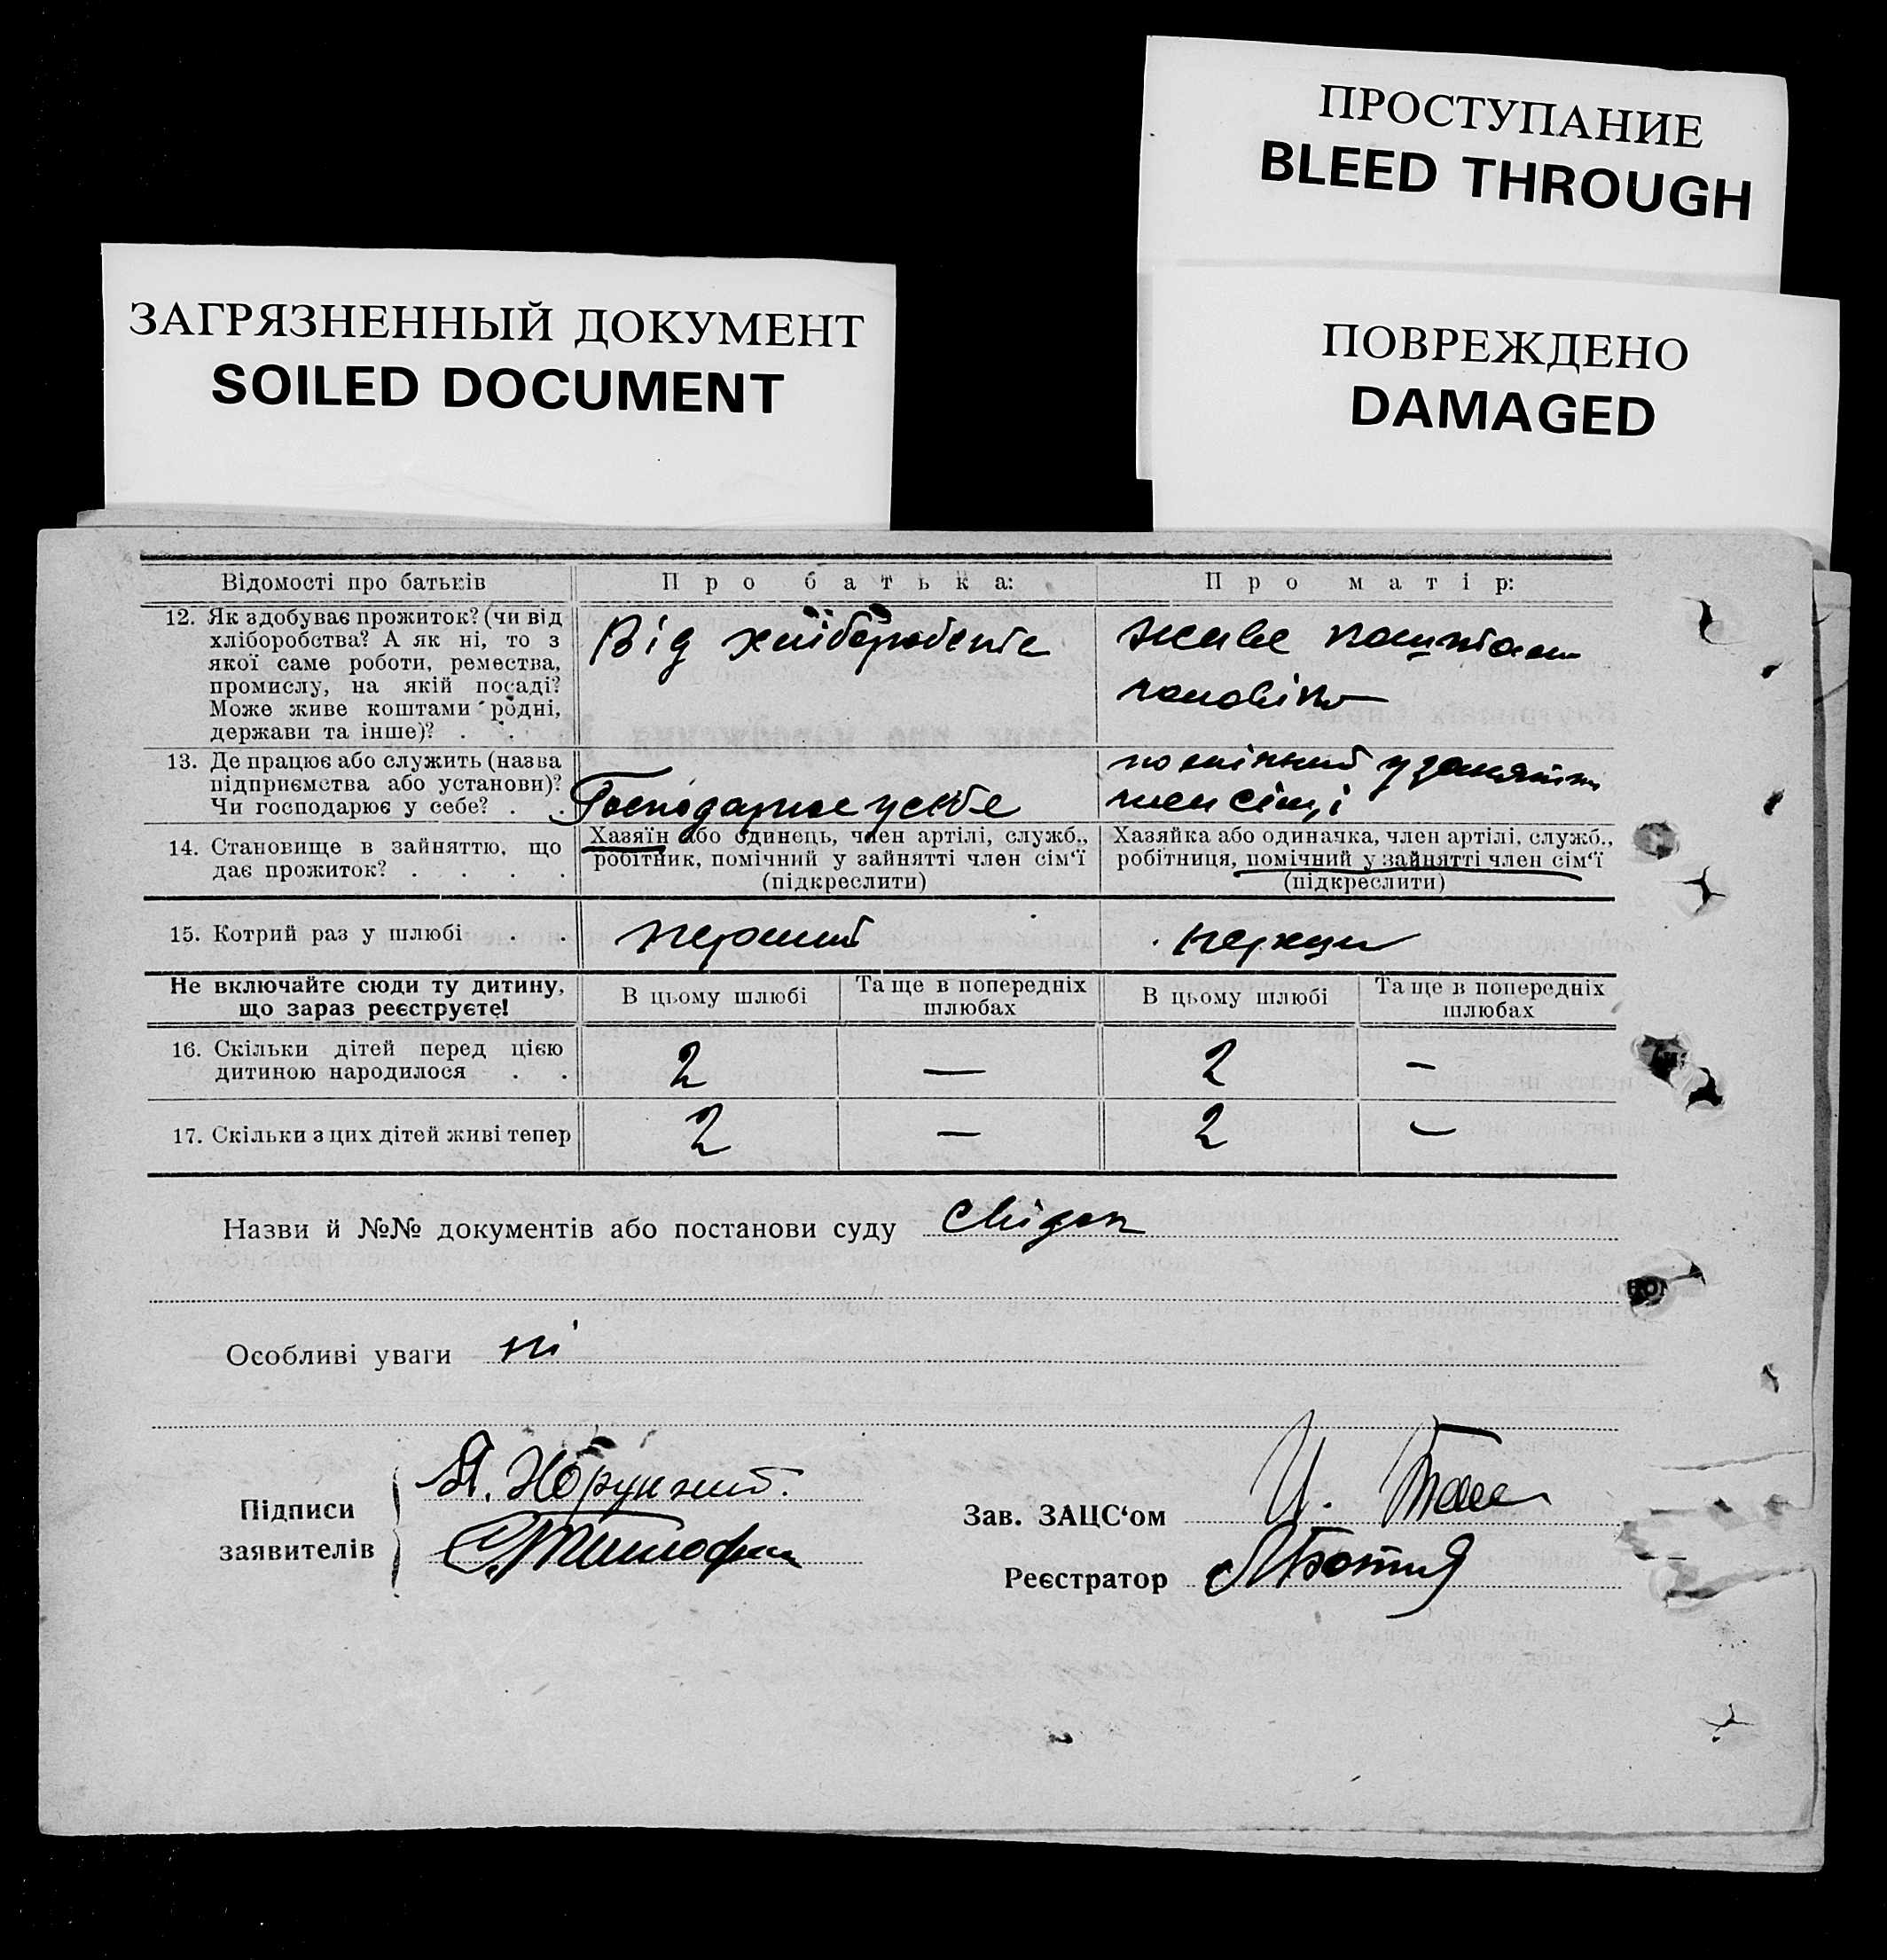 ПРОСТУПАНИЕ
BLEED THROUGH
ЗАГРЯЗНЕННЫЙ ДОКУМЕНТ
SOILED DOCUMENT
ПОВРЕЖДЕНО
DAMAGED
Відомості про батьків
Про батька:
Про матір:
12. Як здобуває прожиток? (чи від
хліборобства? А як ні, то з
якої саме роботи, ремества,
промислу, на якій посаді?
Може живе коштами родні,
держави та інше)? . .
Від хліборобства
живе коштами
чоловіка
13. Де працює або служить (назва
підприємства або установи)?
Чи господарює у себе? . .
Господарює у себе
помічний у занятті
член сімʼї
14. Становище в зайняттю, що
дає прожиток? . . . .
Хазяїн або одинець, член артілі, служб.,
робітник, помічний у зайнятті член сім‘ї
(підкреслити)
Хазяйка або одиначка, член артілі, служб.,
робітниця, помічний у зайнятті член сім‘ї
(підкреслити)
15. Котрий раз у шлюбі . .
перший
перший
Не включайте сюди ту дитину,
що зараз реєструєте!
В цьому шлюбі
Та ще в попередніх
шлюбах
В цьому шлюбі
Та ще в попередніх
шлюбах
16. Скільки дітей перед цією
дитиною народилося . .
2
—
2
–
17. Скільки з цих дітей живі тепер
2
—
2
–
Назви й №№ документів або постанови суду
Свідок
Особливі уваги ні
Підписи
заявителів
Зав. ЗАЦС‘ом
Реєстратор